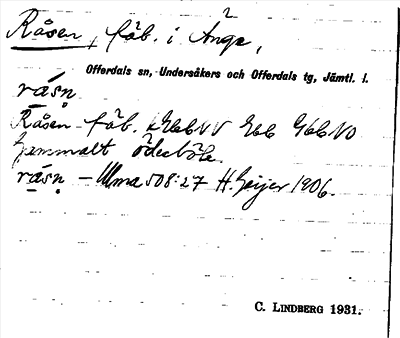 Råsen, fäb. i Ånge,
Offerdals sn, Undersåkers och Offerdals tg, Jämtl. l.
råsn
Råsen fäb. GebNV Geb GebNO
Gammalt ödesböle.
råsn – Ulma 508:27 H. Geijer 1906.
C. LINDBERG 1931.